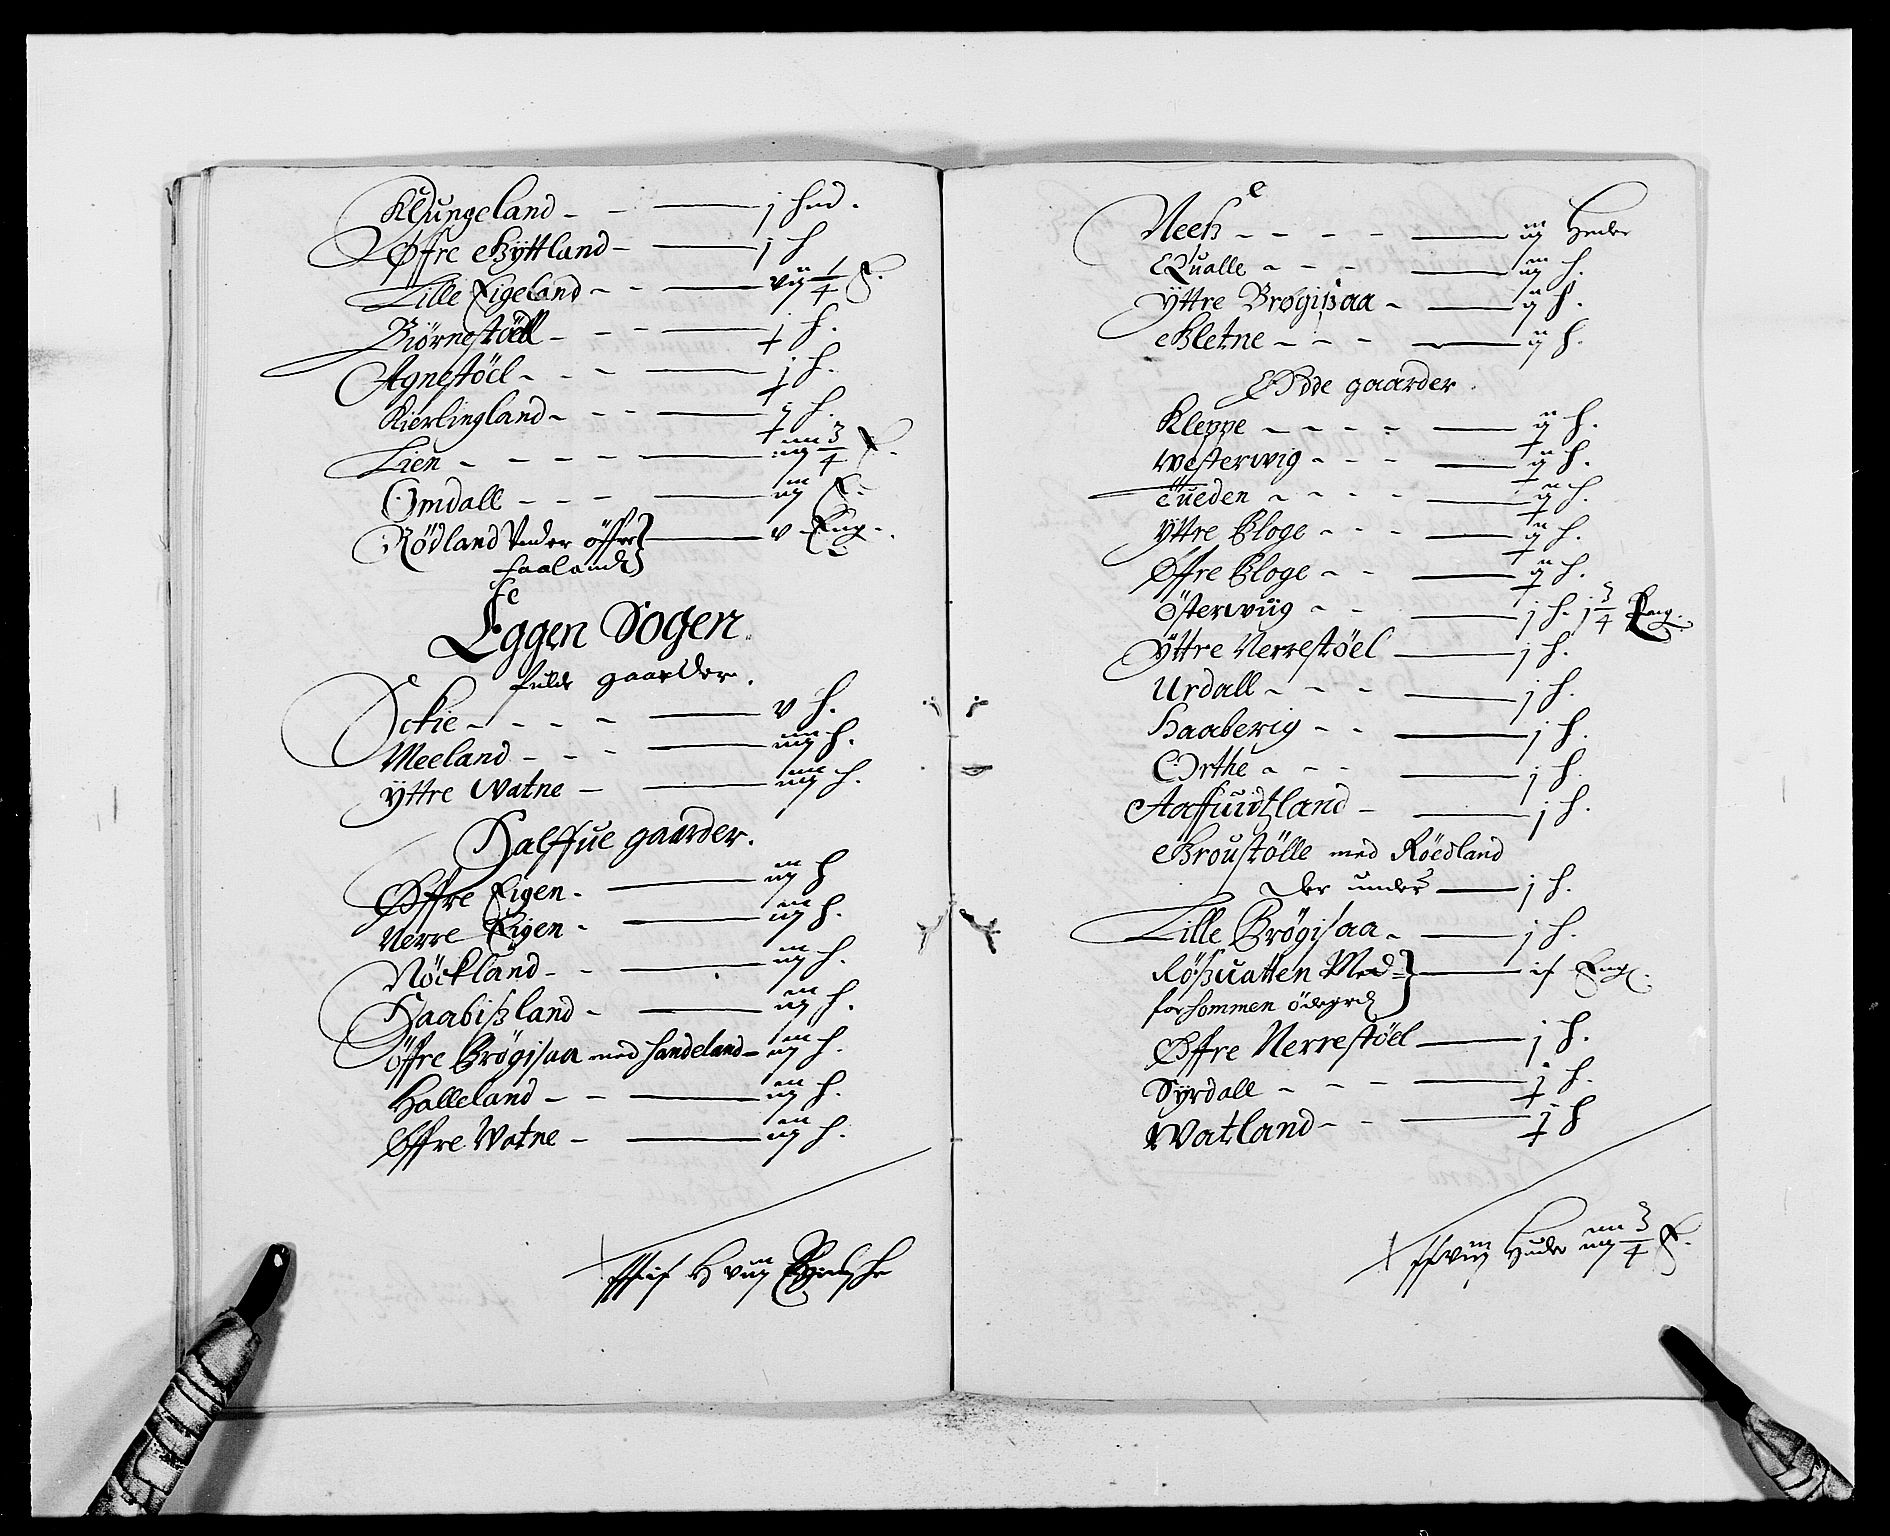 Klungeland - - — j hud.
Øffre Eikyttland - — j h
Lille Eigeland - - — vij 1/4 E.
Biörnestöell - - - j h.
Agnestöel - - - — j h.
Kierlingland - - - — j h.
Lien - - - - — iiij 3/4 E.
Omdall - - - — iij E.
Rödland Vnder öffre — v Eng.
faaland
Eggen Sogen
fulde gaarder.
Sckie - - - - — v h.
Meeland - - - — iiij h.
Yttre Watne - — iiij h.
Halffue gaarder.
Øffre Eigen - — iij h
Nerre Eigen - — iij h.
Nöckland - - — iij h.
Haabißland - — iij h.
öffre Brögisaa med handeland - iij h.
Halleland - - — iij h.
Øffre Watne - — iij h.
H viij
Neeß - - - - — iij Huder
Qualle - - - — iij h.
Yttre Brøgißaa - — ij h.
Bletne - - - — ij h.
Øde gaarder.
Kleppe - - - - — ij h.
Westerwig - - - — ij h.
Tueden - - - - — ij h.
Yttre Kloge - - - — ij h.
Øffre Kloge - - — ij h.
Österwiig - - — j h. j 3/4 Eng.
Yttre Nerrestöel — j h.
Urdall - - - — j h.
Haaberig - - — j h.
Orthe - - - — j h.
Aaffuidtland - — j h.
Broustölle med Röedland
der under — j h.
Lille Brögisaa - — j h.
Rößuatten Med — Eng.
forsommen ödegrd
Øffre Nerrestöel — j h.
Syrdall - - - — j h.
Watland - - - — j h
Huder iiij 3/4 E.